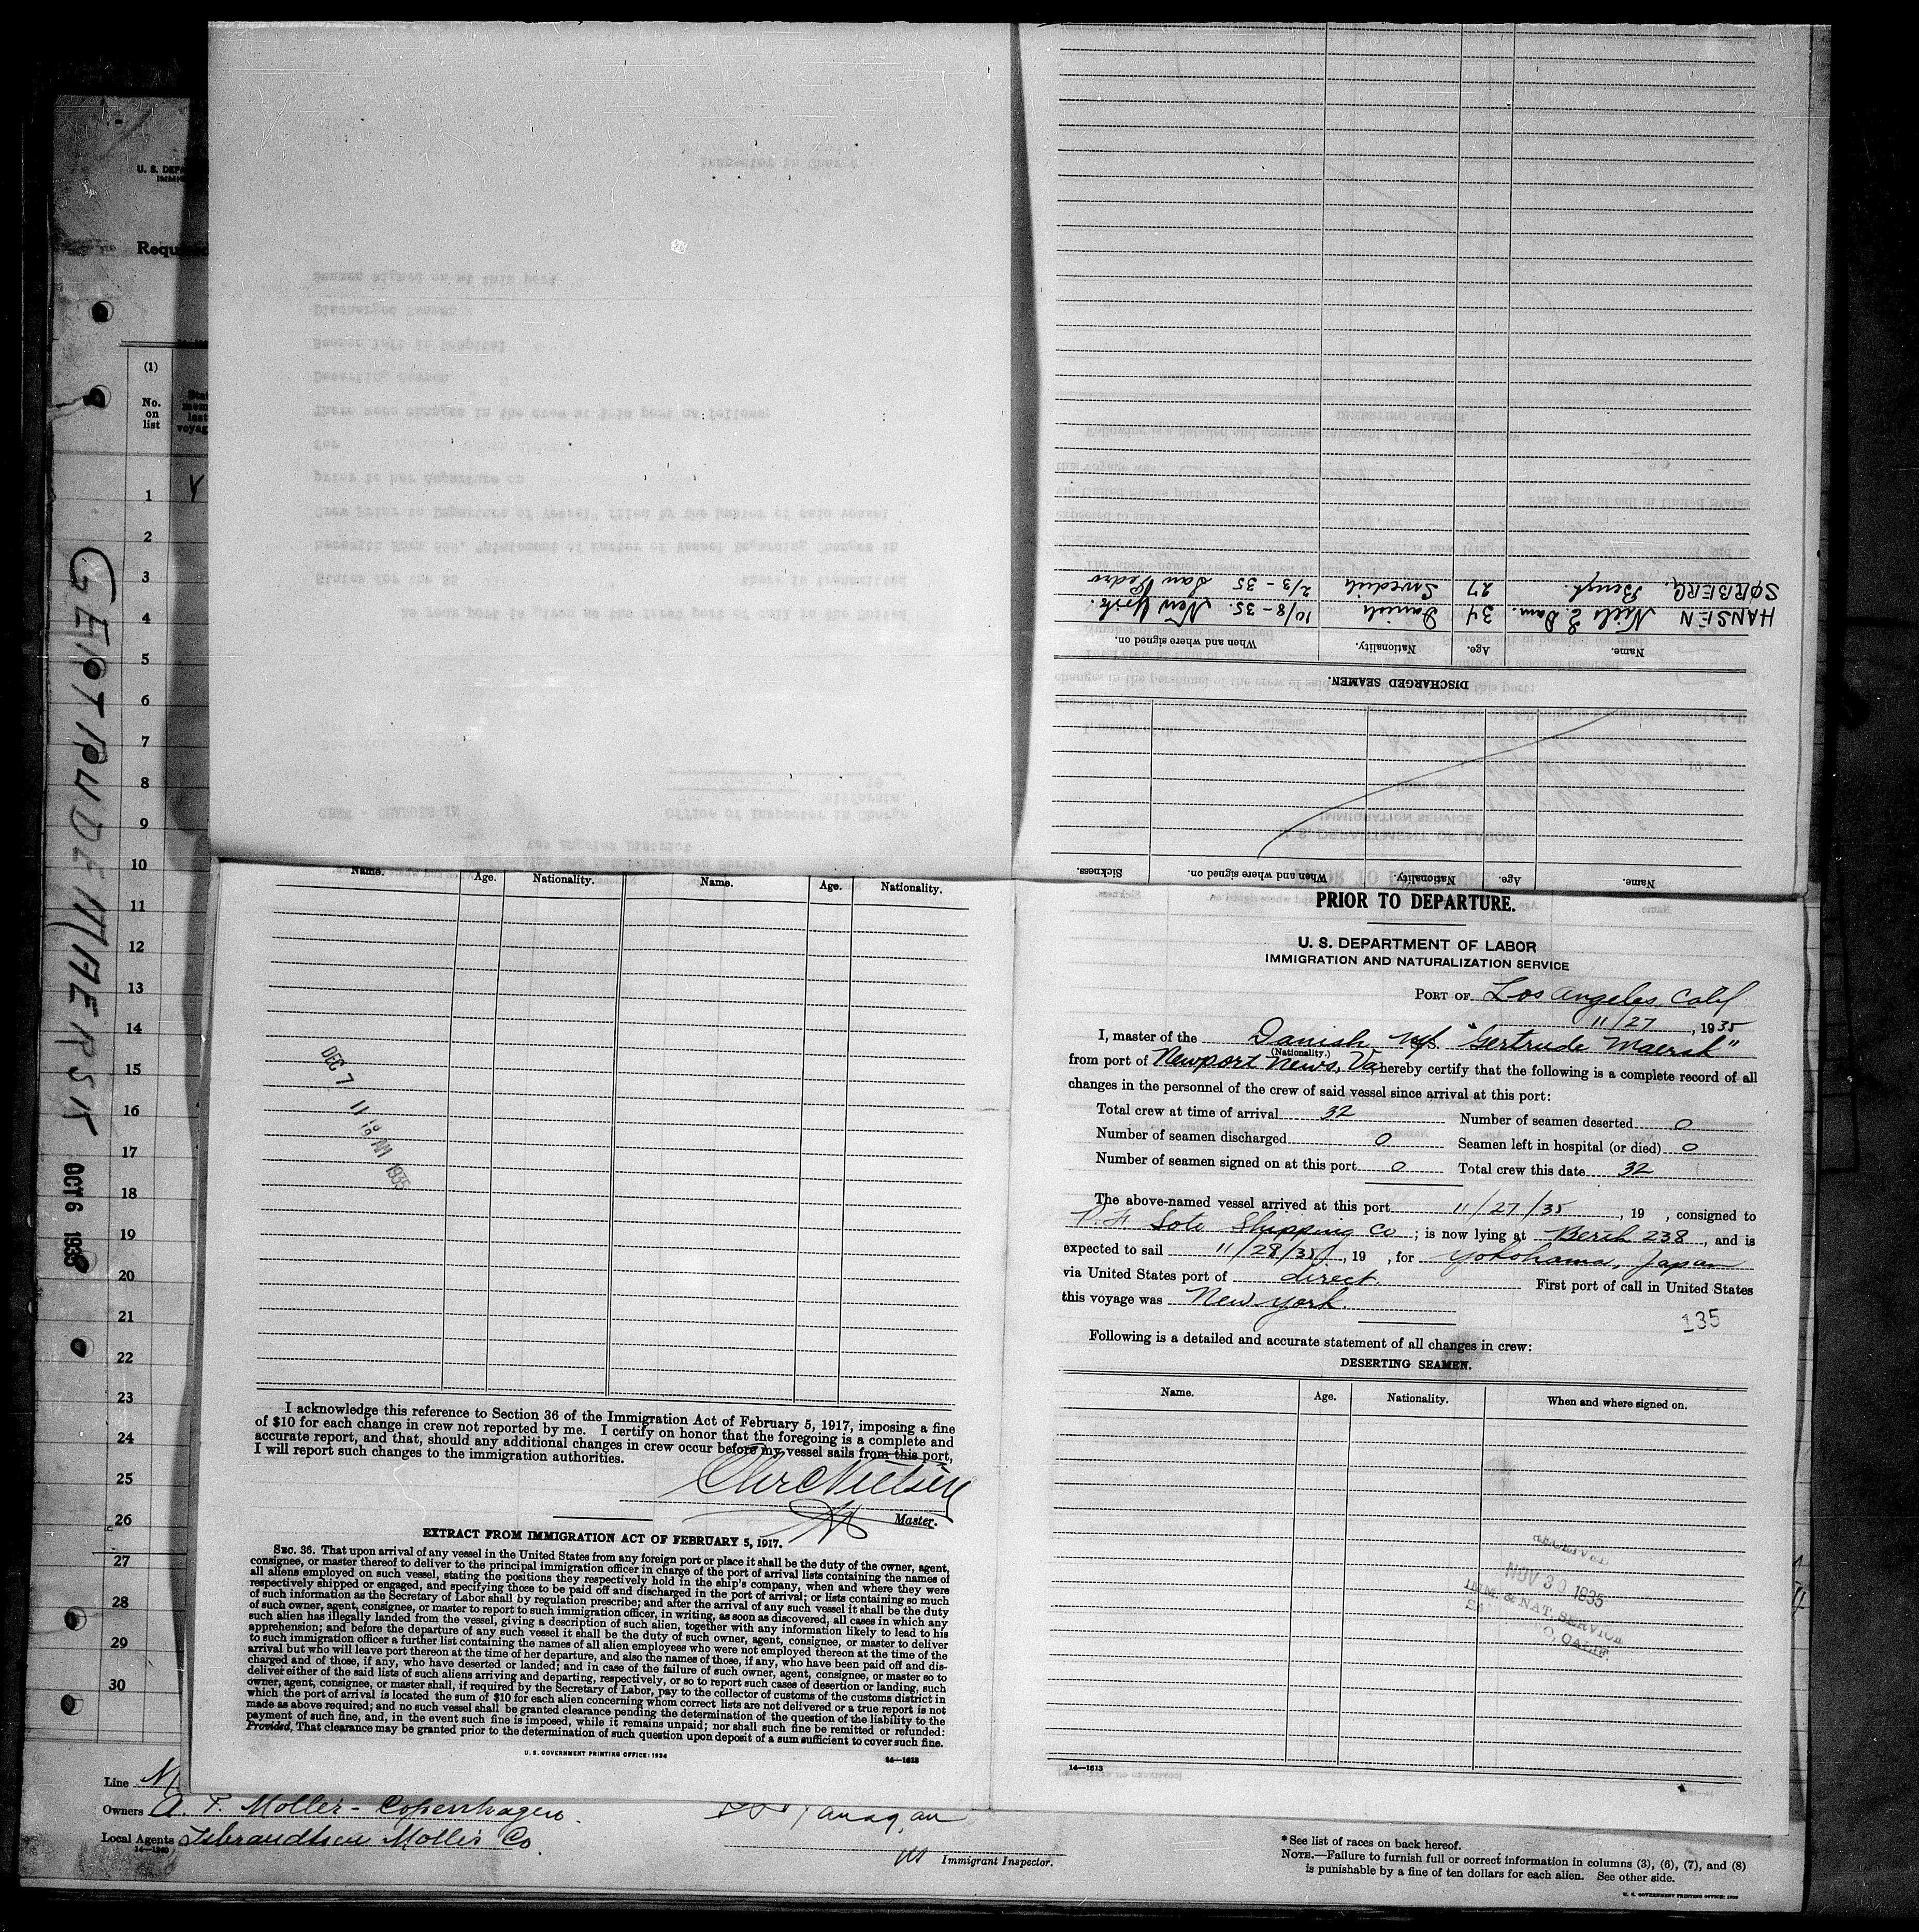 U. S. DEPA
IMMIG
Requi
(1)
No.
on
list
Stat
mem
last
voyag
1
2
3
4
5
6
7
8
9
10
11
12
13
14
15
16
17
18
19
20
21
22
23
24
25
26
27
28
29
30
GERTRUDE MAERSK
OCT 6 1935
SØRBERG, Bengt. 27 Swedish 2/3-35 San Pedro
HANSEN Niels E. Dam. 34 Danish 10/8-35. New York
Name. Age. Nationality. When and where signed on.
DISCHARGED SEAMEN.
Name. Age. Nationality. When and where signed on. Sickness.
Name. Age. Nationality. Name. Age. Nationality.
DEC 7 11 18 AM 1935
I acknowledge this reference to Section 36 of the Immigration Act of February 5, 1917, imposing a fine
of $10 for each change in crew not reported by me. I certify on honor that the foregoing is a complete and
accurate report, and that, should any additional changes in crew occur before my vessel sails from this port,
I will report such changes to the immigration authorities.
Chr Nielsen
Master.
EXTRACT FROM IMMIGRATION ACT OF FEBRUARY 5, 1917.
SEC. 36. That upon arrival of any vessel in the United States from any foreign port or place it shall be the duty of the owner, agent,
consignee, or master thereof to deliver to the principal immigration officer in charge of the port of arrival lists containing the names of
all aliens employed on such vessel, stating the positions they respectively hold in the ship's company, when and where they were
respectively shipped or engaged, and specifying those to be paid off and discharged in the port of arrival; or lists containing so much
of such information as the Secretary of Labor shall by regulation prescribe; and after the arrival of any such vessel it shall be the duty
of such owner, agent, consignee, or master to report to such immigration officer, in writing, as soon as discovered, all cases in which any
such alien has illegally landed from the vessel, giving a description of such alien, together with any information likely to lead to his
apprehension; and before the departure of any such vessel it shall be the duty of such owner, agent, consignee, or master to deliver
to such immigration officer a further list containing the names of all alien employees who were not employed thereon at the time of the
arrival but who will leave port thereon at the time of her departure, and also the names of those, if any, who have been paid off and dis-
charged and of those, if any, who have deserted or landed; and in case of the failure of such owner, agent, consignee, or master so to
deliver either of the said lists of such aliens arriving and departing, respectively, or so to report such cases of desertion or landing, such
owner, agent, consignee, or master shall, if required by the Secretary of Labor, pay to the collector of customs of the customs district in
which the port of arrival is located the sum of $10 for each alien concerning whom correct lists are not delivered or a true report is not
made as above required; and no such vessel shall be granted clearance pending the determination of the question of the liability to the
payment of such fine, and, in the event such fine is imposed, while it remains unpaid; nor shall such fine be remitted or refunded:
Provided, That clearance may be granted prior to the determination of such question upon deposit of a sum sufficient to cover such fine.
U. S. GOVERNMENT PRINTING OFFICE: 1934
14—1613
PRIOR TO DEPARTURE.
U. S. DEPARTMENT OF LABOR
IMMIGRATION AND NATURALIZATION SERVICE
PORT OF Los Angeles, Calif
11/27, 1935
I, master of the Danish M/S. "Gertrude Maersk"
(Nationality.)
from port of Newport News, Va, hereby certify that the following is a complete record of all
changes in the personnel of the crew of said vessel since arrival at this port:
Total crew at time of arrival 32 Number of seamen deserted 0
Number of seamen discharged 0 Seamen left in hospital (or died) 0
Number of seamen signed on at this port 0 Total crew this date 32
The above-named vessel arrived at this port 11/27/35, 19 , consigned to
Shipping Co; is now lying at Berth 238, and is
expected to sail 11/28/35, 19 , for Yokohama, Japan
via United States port of direct. First port of call in United States
this voyage was New York.
135
Following is a detailed and accurate statement of all changes in crew:
DESERTING SEAMEN.
Name. Age. Nationality. When and where signed on.
RECEIVED
NOV 30 1935
IMM. & NAT. SERVICE
O, CALIF.
14—1613
Line
Owners A. P. Moller - Copenhagen.
Local Agents Isbrandtsen Moller Co.
14—1240
Immigrant Inspector.
*See list of races on back hereof.
NOTE.—Failure to furnish full or correct information in columns (3), (6), (7), and (8)
is punishable by a fine of ten dollars for each alien. See other side.
U. S. GOVERNMENT PRINTING OFFICE: